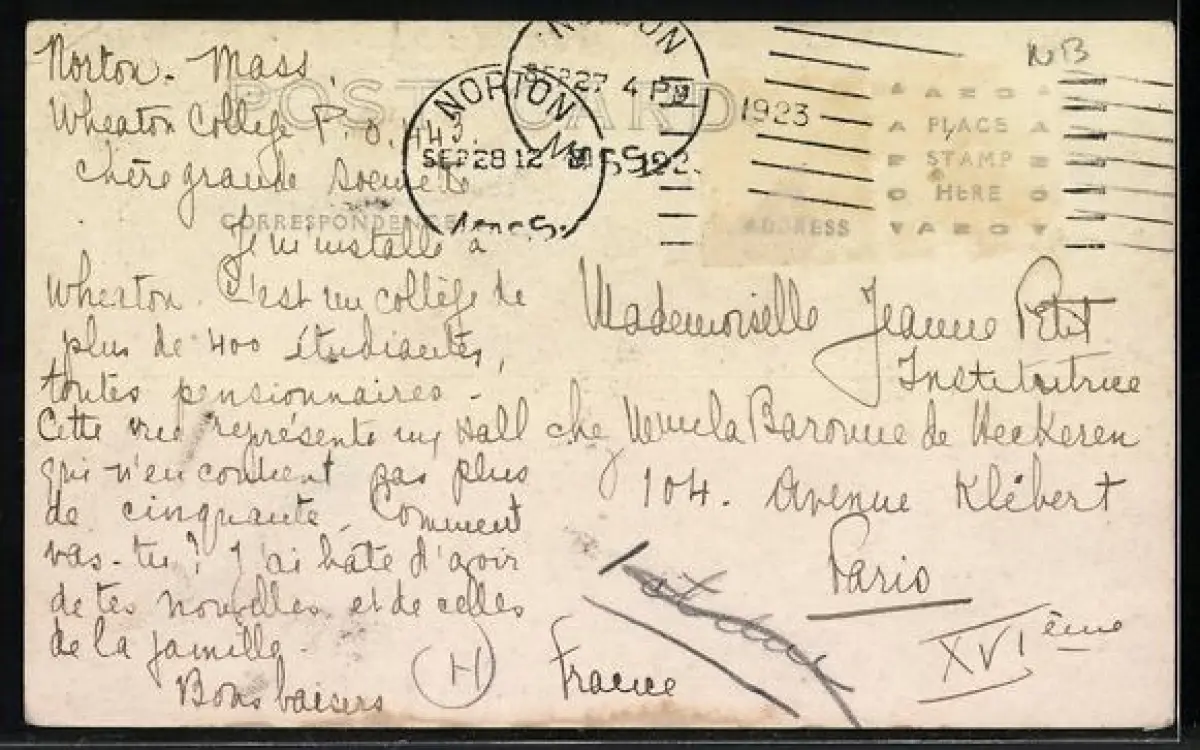 Norton - Mass.
Wheaton College P.O. 443.
Chère grande soeurette
Je m'installe à
Wheaton. C'est un collège de
plus de 400 étudiantes,
toutes pensionnaires -
Cette vue représente un Hall
qui n'en contient pas plus
de cinquante. Comment
vas-tu? J'ai hâte d'avoir
de tes nouvelles et de celles
de la famille.
Bons baisers
H
POST CARD
CORRESPONDENCE
NORTON
SEP 27 4 PM
1923
MASS.
NORTON
SEP 28 12 M
192
MASS.
NB
AZO
PLACE
STAMP
HERE
AZO
ADDRESS
Mademoiselle Jeanne Petit
Institutrice
chez la Baronne de Heckeren
104. Avenue Klébert
Paris
XVIème
France